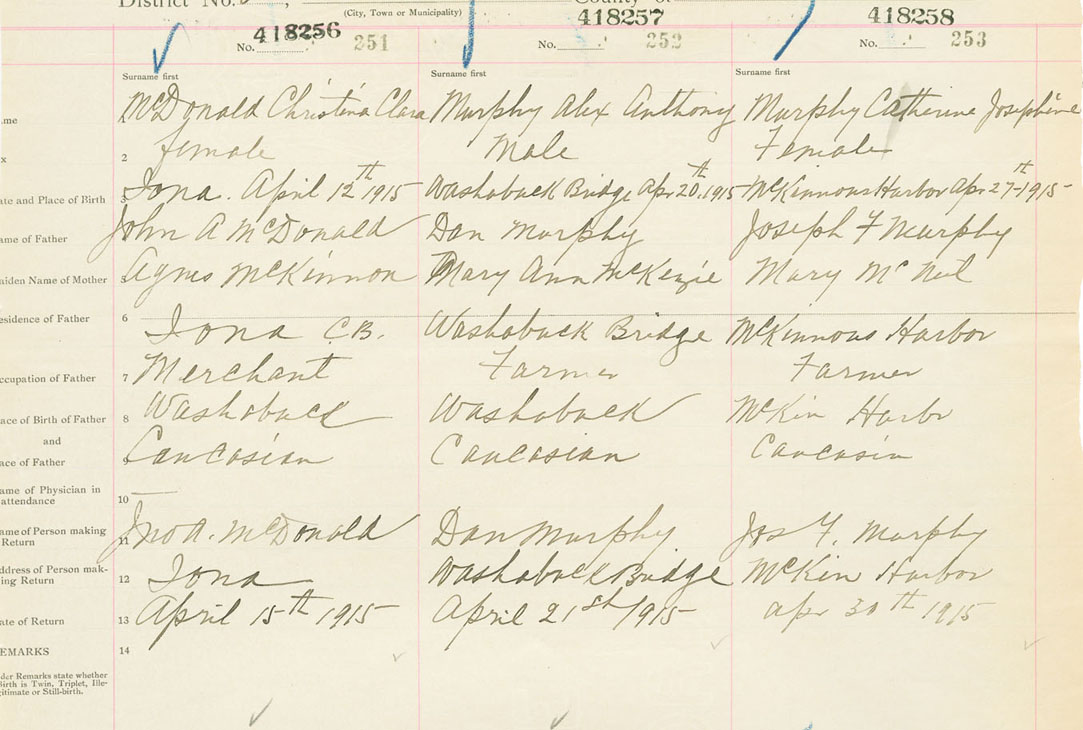 District No.
(City, Town or Municipality)
County of
418256
No. 251
418257
No. 252
418258
No. 253
Surname first
Surname first
Surname first
me
1
McDonald Christina Clara
Murphy Alex Anthony
Murphy Catherine Josephine
x
2
female
Male
Female
ate and Place of Birth
3
Iona. April 12th 1915
Washaback Bridge Apr 20th. 1915
McKinnons Harbor Apr 27th-1915
ame of Father
John A McDonald
Dan Murphy
Joseph F Murphy
aiden Name of Mother
5
Agnes McKinnon
Mary Ann McKenzie
Mary McNeil
esidence of Father
6
Iona C.B.
Washaback Bridge
McKinnons Harbor
ccupation of Father
7
Merchant
Farmer
Farmer
ace of Birth of Father
8
Washaback
Washaback
McKin Harbr
and
ace of Father
9
Caucasian
Caucasian
Caucasin
ame of Physician in
attendance
10
ame of Person making
Return
11
Jno A. McDonald
Dan Murphy
Jos F. Murphy
ddress of Person mak-
ing Return
12
Iona
Washaback Bridge
McKin Harbor
ate of Return
13
April 15th 1915
April 21st 1915
apr 30th 1915
EMARKS
14
der Remarks state whether
Birth is Twin, Triplet, Ille-
gitimate or Still-birth.